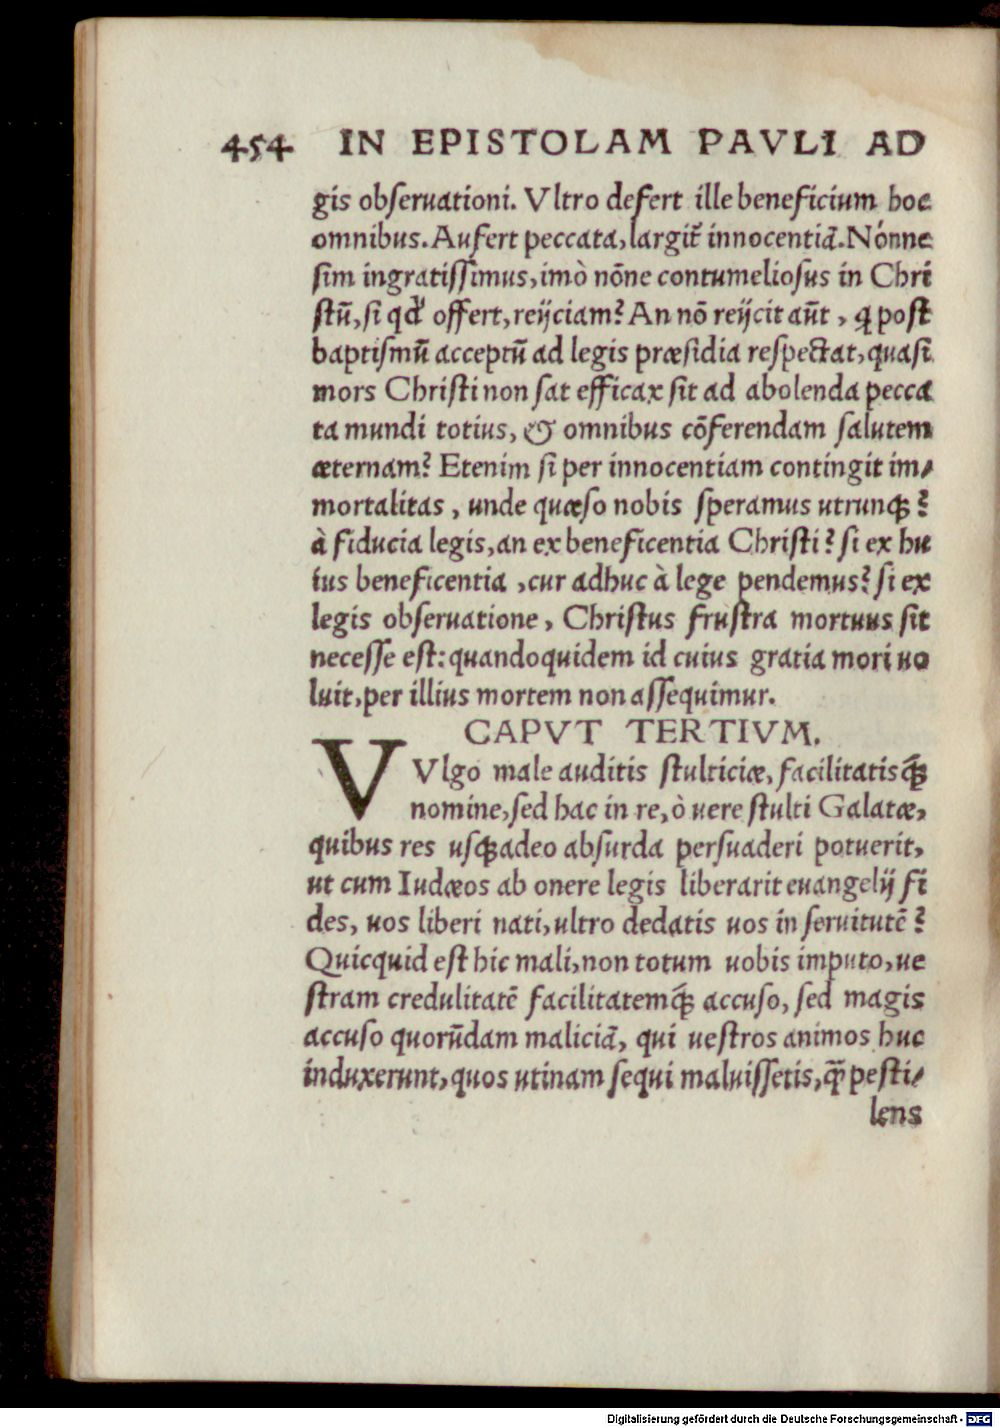 454 IN EPISTOLAM PAVLI AD
gis obſeruationi. Vltro defert ille beneficium hoc
omnibus. Aufert peccata, largit᷑ innocentiã. Nónne
ſim ingratiſſimus, imò nõne contumelioſus in Chri
ſtũ, ſi qd̓ offert, reijciam? An nõ reijcit aũt, ꝗ poſt
baptiſmũ acceptũ ad legis præſidia reſpectat, quaſi
mors Chriſti non ſat efficax ſit ad abolenda pecca
ta mundi totius, & omnibus cõferendam ſalutem
æternam? Etenim ſi per innocentiam contingit im⸗
mortalitas, unde quæſo nobis ſperamus utrunq́;?
à fiducia legis, an ex beneficentia Chriſti? ſi ex hu
ius beneficentia, cur adhuc à lege pendemus? ſi ex
legis obſeruatione, Chriſtus fruſtra mortuus ſit
neceſſe eſt: quandoquidem id cuius gratia mori uo
luit, per illius mortem non aſſequimur.
CAPVT TERTIVM.
VVlgo male auditis ſtulticiæ, facilitatisq́;
nomine, ſed hac in re, ò uere ſtulti Galatæ,
quibus res uſq;adeo abſurda perſuaderi potuerit,
ut cum Iudæos ab onere legis liberarit euangelij fi
des, uos liberi nati, ultro dedatis uos in ſeruitutẽ?
Quicquid eſt hic mali, non totum uobis imputo, ue
ſtram credulitatẽ facilitatemq́; accuſo, ſed magis
accuſo quorũdam maliciã, qui ueſtros animos huc
induxerunt, quos utinam ſequi maluiſſetis, q̃ peſti⸗
lens
Digitalisierung gefördert durch die Deutsche Forschungsgemeinschaft - DFG